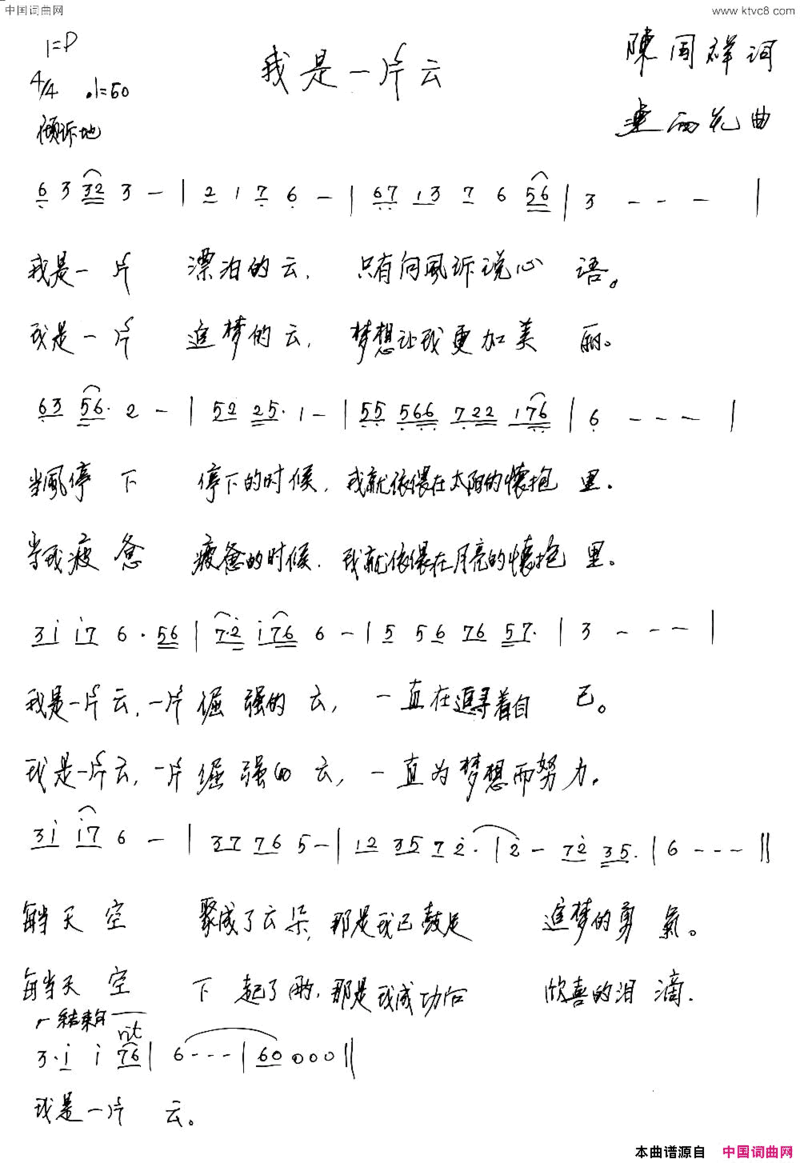 中国词曲网
www.ktvc8.com
我是一片云
1=D
4/4 ♩=50
倾诉地
陳国祥词
曲
6̣ 3 32 3 — | 2 1 7̣ 6̣ — | 6̣7̣ 13 7̣ 6̣ 5̣6̣ | 3 - - - |
我是一片 漂泊的云, 只有向風诉说心 语。
我是一片 追梦的云, 梦想让我更加美 丽。
6̣3 56· 2 — | 52 25· 1 — | 5̣5̣ 5̣6̣6̣ 7̣22 17̣6̣ | 6̣ - - - |
当風停 下 停下的时候, 我就依偎在太阳的懷抱 里。
当我疲惫 疲惫的时候, 我就依偎在月亮的懷抱 里。
3i i7 6· 56 | 7·2̇ i76 6 — | 5 56 76 57· | 3 - - - |
我是一片云, 一片倔强的 云, 一直在追寻着自 己。
我是一片云, 一片倔强的 云, 一直为梦想而努力。
3i i7 6 — | 37 76 5 — | 12 35 72̇· | 2̇ — 72̇ 35· | 6 - - - ‖
每当天空 聚成了云朵, 那是我已鼓足 追梦的勇氣。
每当天空 下起了雨, 那是我成功后 欣喜的泪滴。
结束句
rit
3·i i 76 | 6 - - - | 60 0 0 0 ‖
我是一片 云。
本曲谱源自 中国词曲网